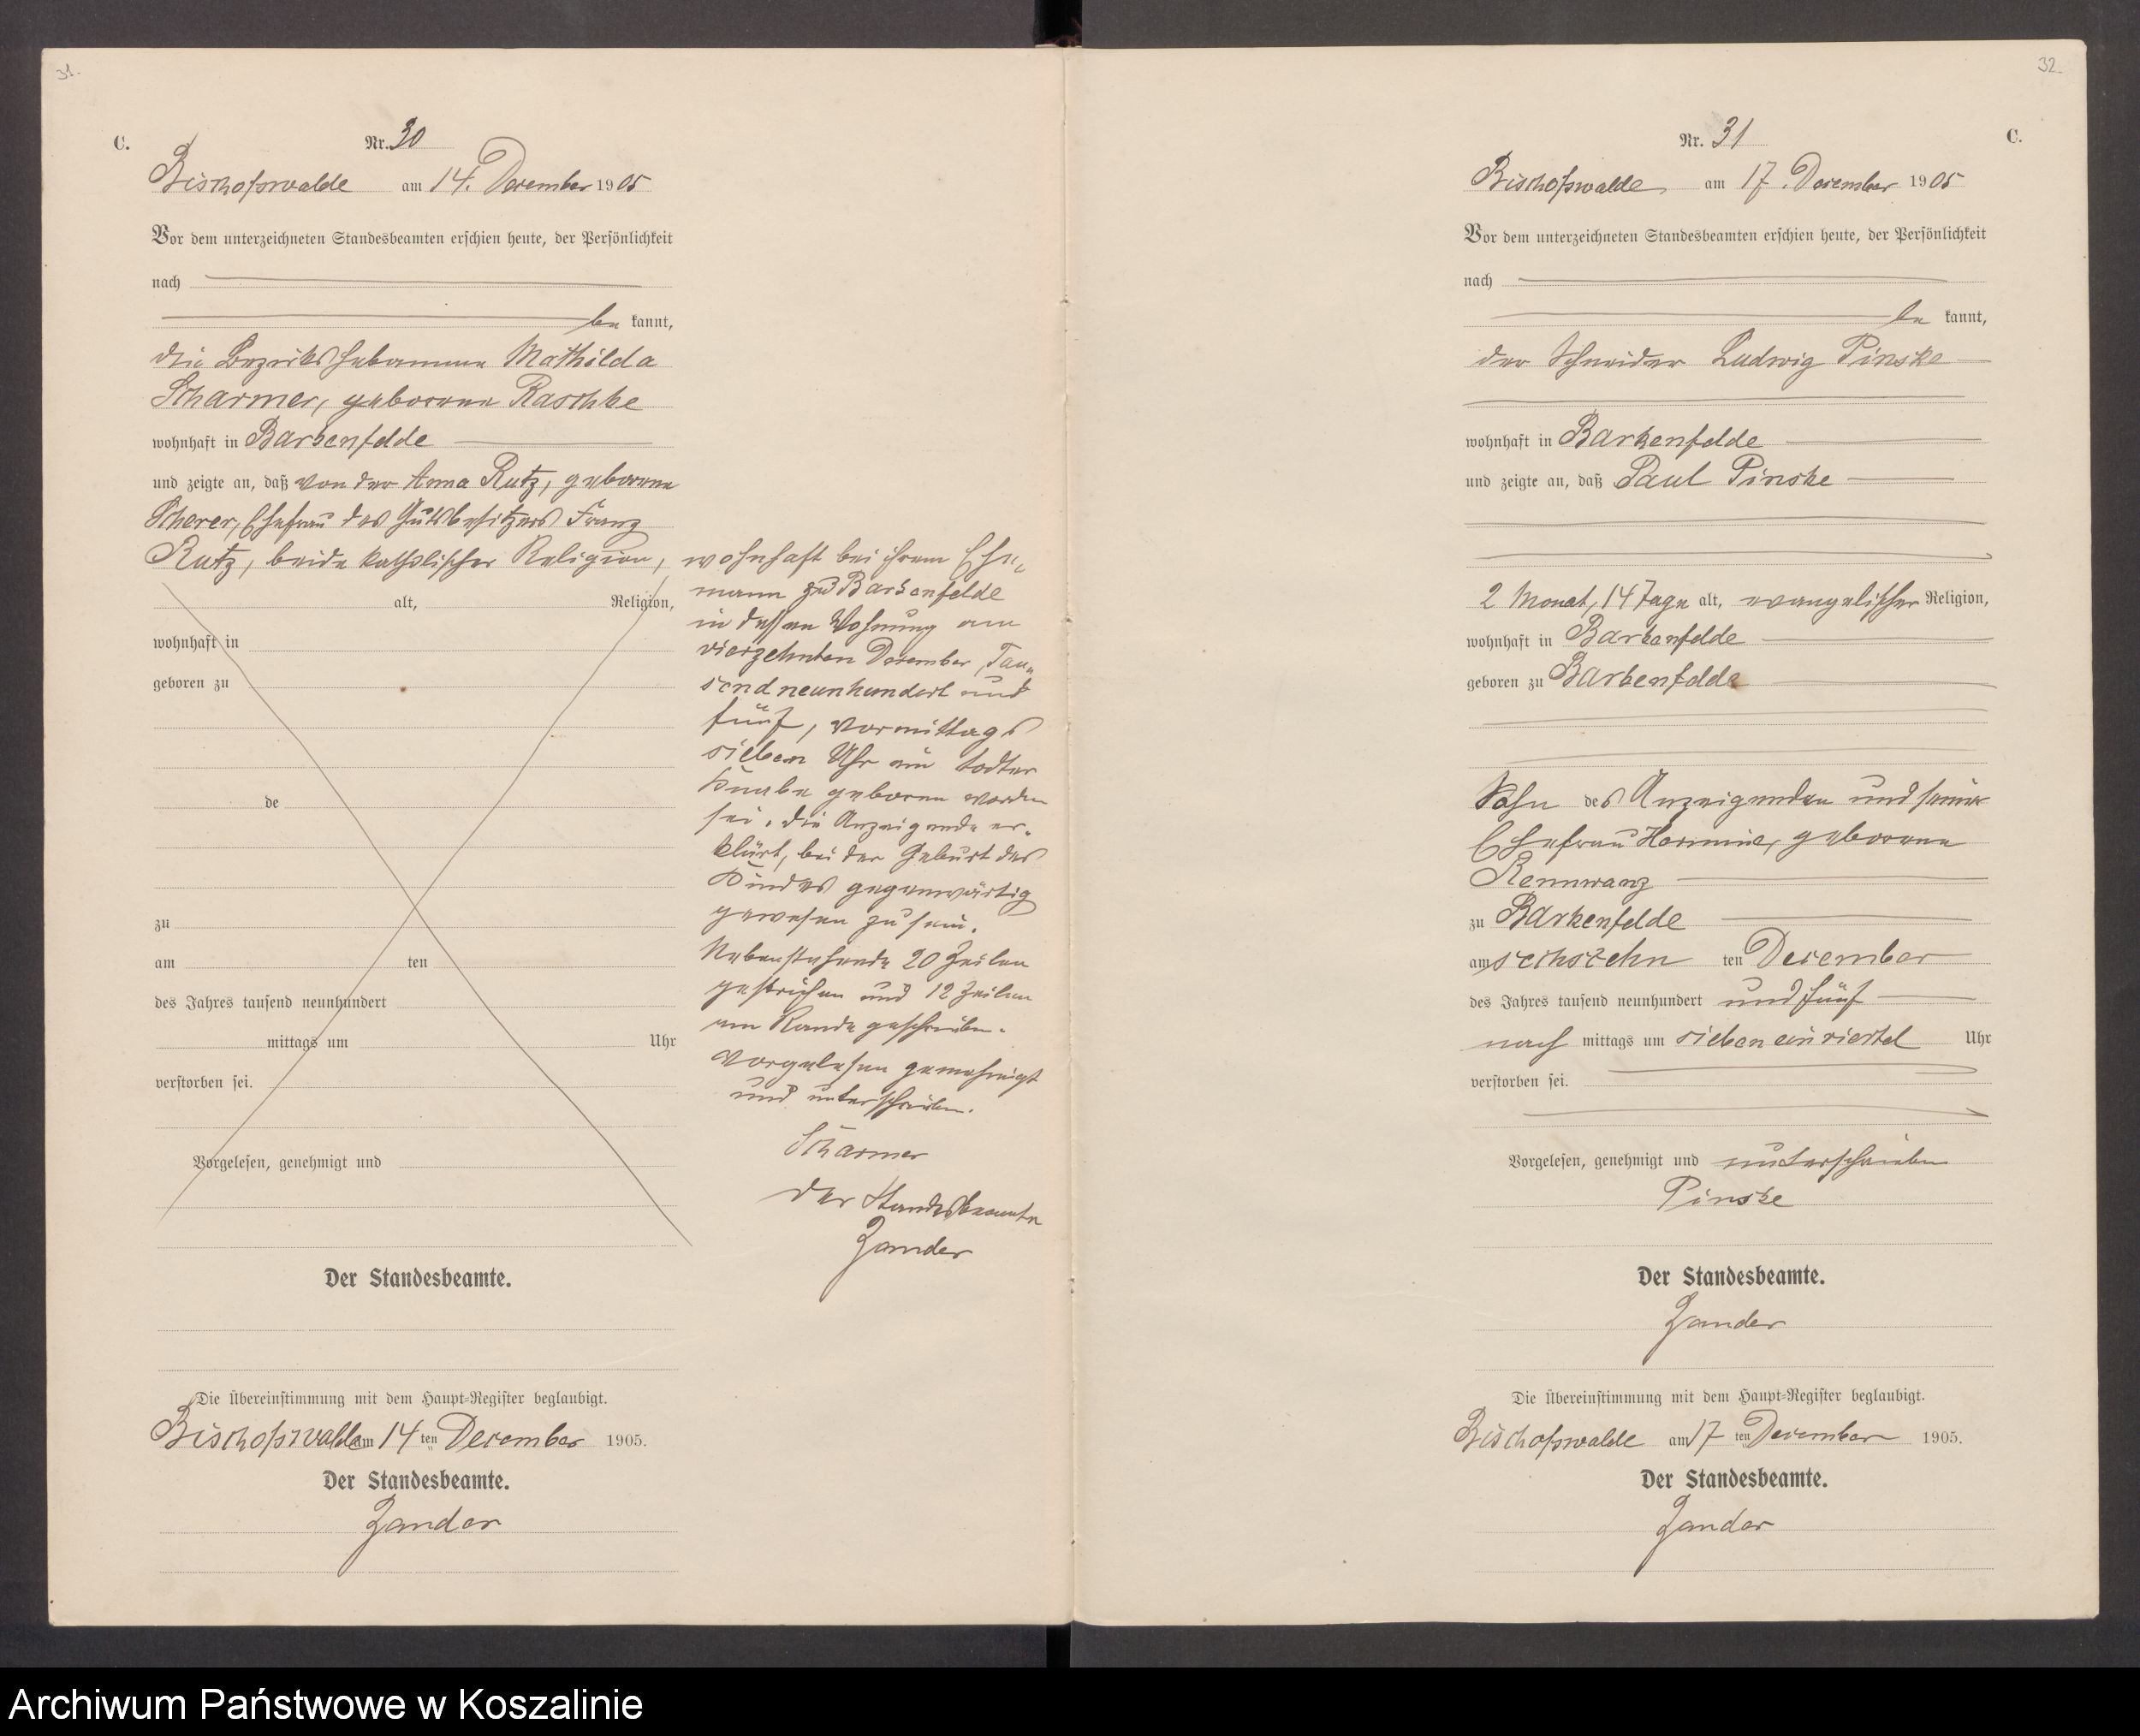 31.
C.
Nr. 30
Bischofswalde am 14. December 1905
Vor dem unterzeichneten Standesbeamten erschien heute, der Persönlichkeit
nach
be kannt,
die Bezirkshebamme Mathilda
Scharmer, geborene Raschke
wohnhaft in Barkenfelde
und zeigte an, daß von der Anna Rutz, geborene
Scherer, Ehefrau des Gutsbesitzers Franz
Rutz, beide katholischer Religion,
alt, Religion,
wohnhaft in
geboren zu
de
zu
am ten
des Jahres tausend neunhundert
mittags um Uhr
verstorben sei.
Vorgelesen, genehmigt und
wohnhaft bei ihrem Ehe-
mann zu Barkenfelde
in dessen Wohnung am
vierzehnten December, Tau-
send neunhundert und
fünf, vormittags
sieben Uhr ein todter
Knabe geboren worden
sei. Die Anzeigende er-
klärt, bei der Geburt des
Kindes gegenwärtig
gewesen zu sein.
Nebenstehende 20 Zeilen
gestrichen und 12 Zeilen
am Rande geschrieben.
Vorgelesen genehmigt
und unterschrieben.
Scharmer
Der Standesbeamte
Zander
Der Standesbeamte.
Die Übereinstimmung mit dem Haupt-Register beglaubigt.
Bischofswalde am 14 ten December 1905.
Der Standesbeamte.
Zander
32
Nr. 31
C.
Bischofswalde, am 17. December 1905
Vor dem unterzeichneten Standesbeamten erschien heute, der Persönlichkeit
nach
be kannt,
der Schneider Ludwig Pinske
wohnhaft in Barkenfelde
und zeigte an, daß Paul Pinske
2 Monat, 14 Tage alt, evangelischer Religion,
wohnhaft in Barkenfelde
geboren zu Barkenfelde
Sohn des Anzeigenden und seiner
Ehefrau Hermine, geborene
Rennwanz
zu Barkenfelde
am sechszehn ten December
des Jahres tausend neunhundert und fünf
nach mittags um sieben ein viertel Uhr
verstorben sei.
Vorgelesen, genehmigt und unterschrieben
Pinske
Der Standesbeamte.
Zander
Die Übereinstimmung mit dem Haupt-Register beglaubigt.
Bischofswalde am 17 ten December 1905.
Der Standesbeamte.
Zander
Archiwum Państwowe w Koszalinie